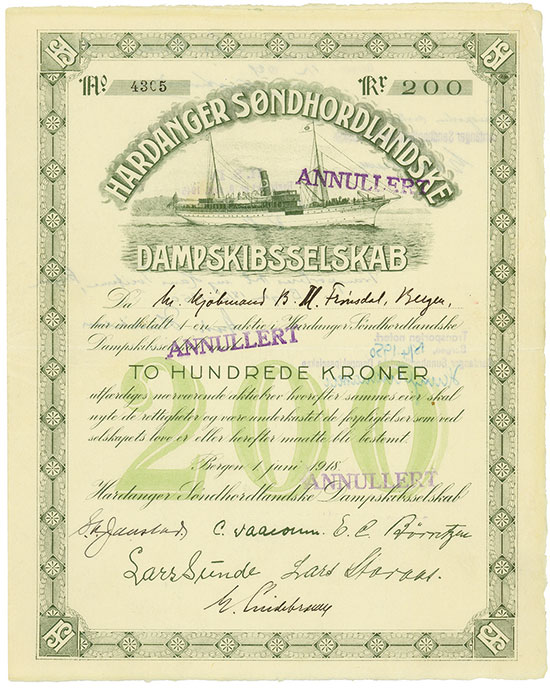 No 4305 Kr 200
HARDANGER SØNDHORDLANDSKE
ANNULLERT
DAMPSKIBSSELSKAB
Da Hr. Kjøbmand B. M. Frønsdal, Bergen,
har indbetalt for en aktie i Hardanger Søndhordlandske
Dampskibsselskab
ANNULLERT
TO HUNDREDE KRONER
200
utfærdiges nærværende aktiebrev hvorefter sammes eier skal
nyte de rettigheter og være underkastet de forpligtelser som ved
selskapets love er eller herefter maatte bli bestemt.
Bergen 1 juni 1918.
ANNULLERT
Hardanger Søndhordlandske Dampskibsselskab
E. C. Børntzen
Lars Sunde Lars Staraas.